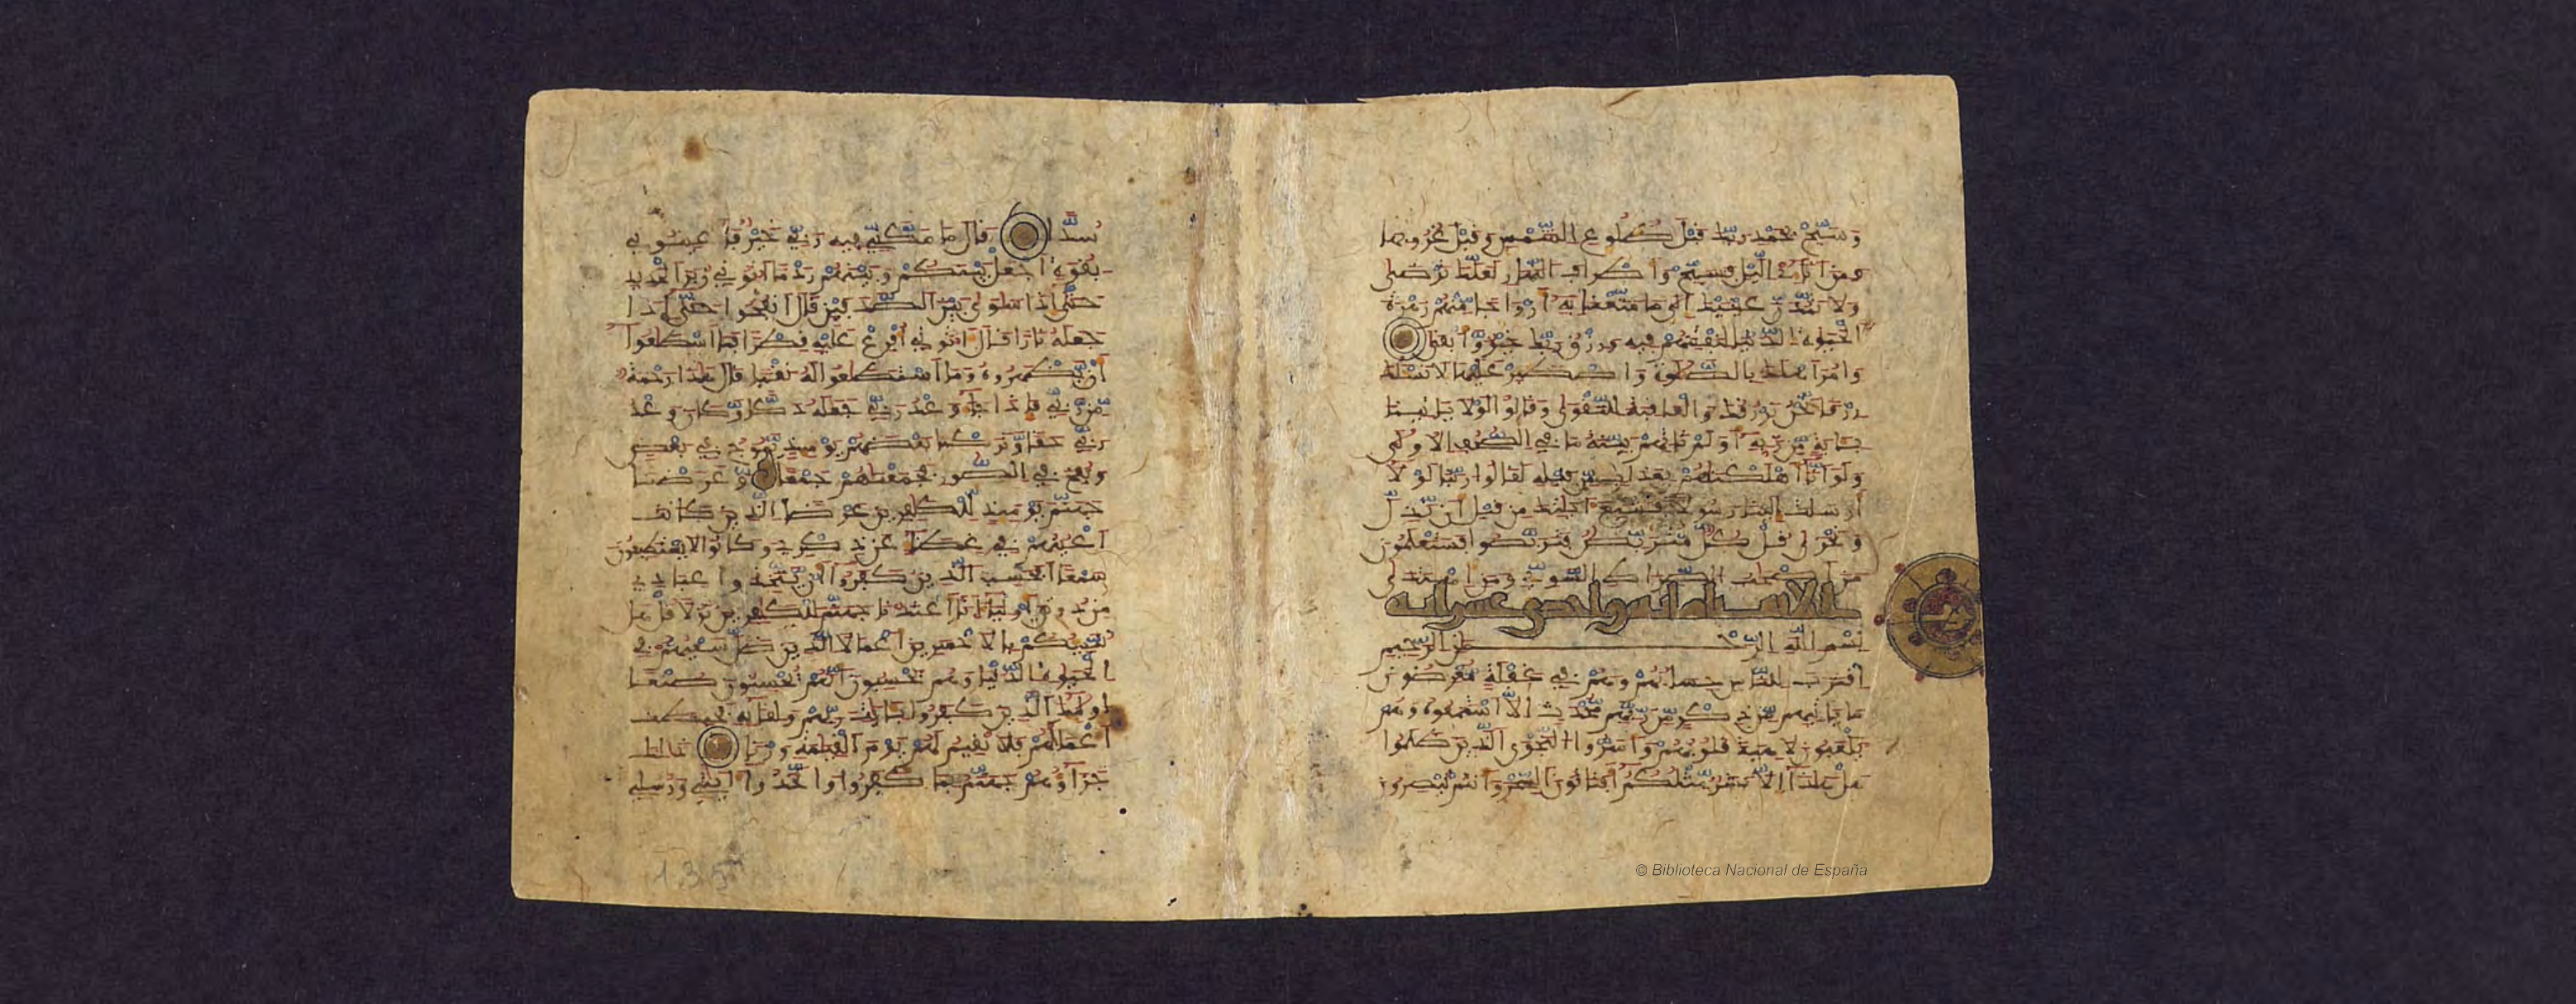 وسبح بحمد ربك قبل طلوع الشمس وقبل غروبها
ومن اناى اليل فسبح واطراف النهار لعلك ترضى
ولا تمدن عينيك الى ما متعنا به ازواجا منهم زهرة
الحيوة الدنيا لنفتنهم فيه ورزق ربك خير وابقى
وامر اهلك بالصلوة واصطبر عليها لا نسلك
رزقا نحن نرزقك والعاقبة للتقوى وقالوا لولا ياتينا
باية من ربه اولم تاتهم بينة ما في الصحف الاولى
ولو انا اهلكنهم بعذاب من قبله لقالوا ربنا لولا
ارسلت الينا رسولا فنتبع ايتك من قبل ان نذل
ونخزى قل كل متربص فتربصوا فستعلمون
من اصحب الصراط السوي ومن اهتدى
الانبياء مائة واحدى عشر اية
بسم الله الرحمن الرحيم
اقترب للناس حسابهم وهم في غفلة معرضون
ما ياتيهم من ذكر من ربهم محدث الا استمعوه وهم
يلعبون لاهية قلوبهم واسروا النجوى الذين ظلموا
هل هذا الا بشر مثلكم افتاتون السحر وانتم تبصرون
سدا قال ما مكني فيه ربي خير فاعينوني
بقوة اجعل بينكم وبينهم ردما اتوني زبر الحديد
حتى اذا ساوى بين الصدفين قال انفخوا حتى اذا
جعله نارا قال اتوني افرغ عليه قطرا فما اسطعوا
ان يظهروه وما استطعوا له نقبا قال هذا رحمة
من ربي فاذا جا وعد ربي جعله دكا وكان وعد
ربي حقا وتركنا بعضهم يومئذ يموج في بعض
ونفخ في الصور فجمعناهم جمعا وعرضنا
جهنم يومئذ للكفرين عرضا الذين كانت
اعينهم في غطا عن ذكري وكانوا لا يستطيعون
سمعا افحسب الذين كفروا ان يتخذوا عبادي
من دوني اوليا انا اعتدنا جهنم للكفرين نزلا قل هل
ننبيكم بالاخسرين اعملا الذين ضل سعيهم في
الحيوة الدنيا وهم يحسبون انهم يحسنون صنعا
اوليك الذين كفروا بايت ربهم ولقائه فحبطت
اعمالهم فلا نقيم لهم يوم القيمة وزنا ذلك
جزاوهم جهنم بما كفروا واتخذوا ايتي ورسلي
135
© Biblioteca Nacional de España